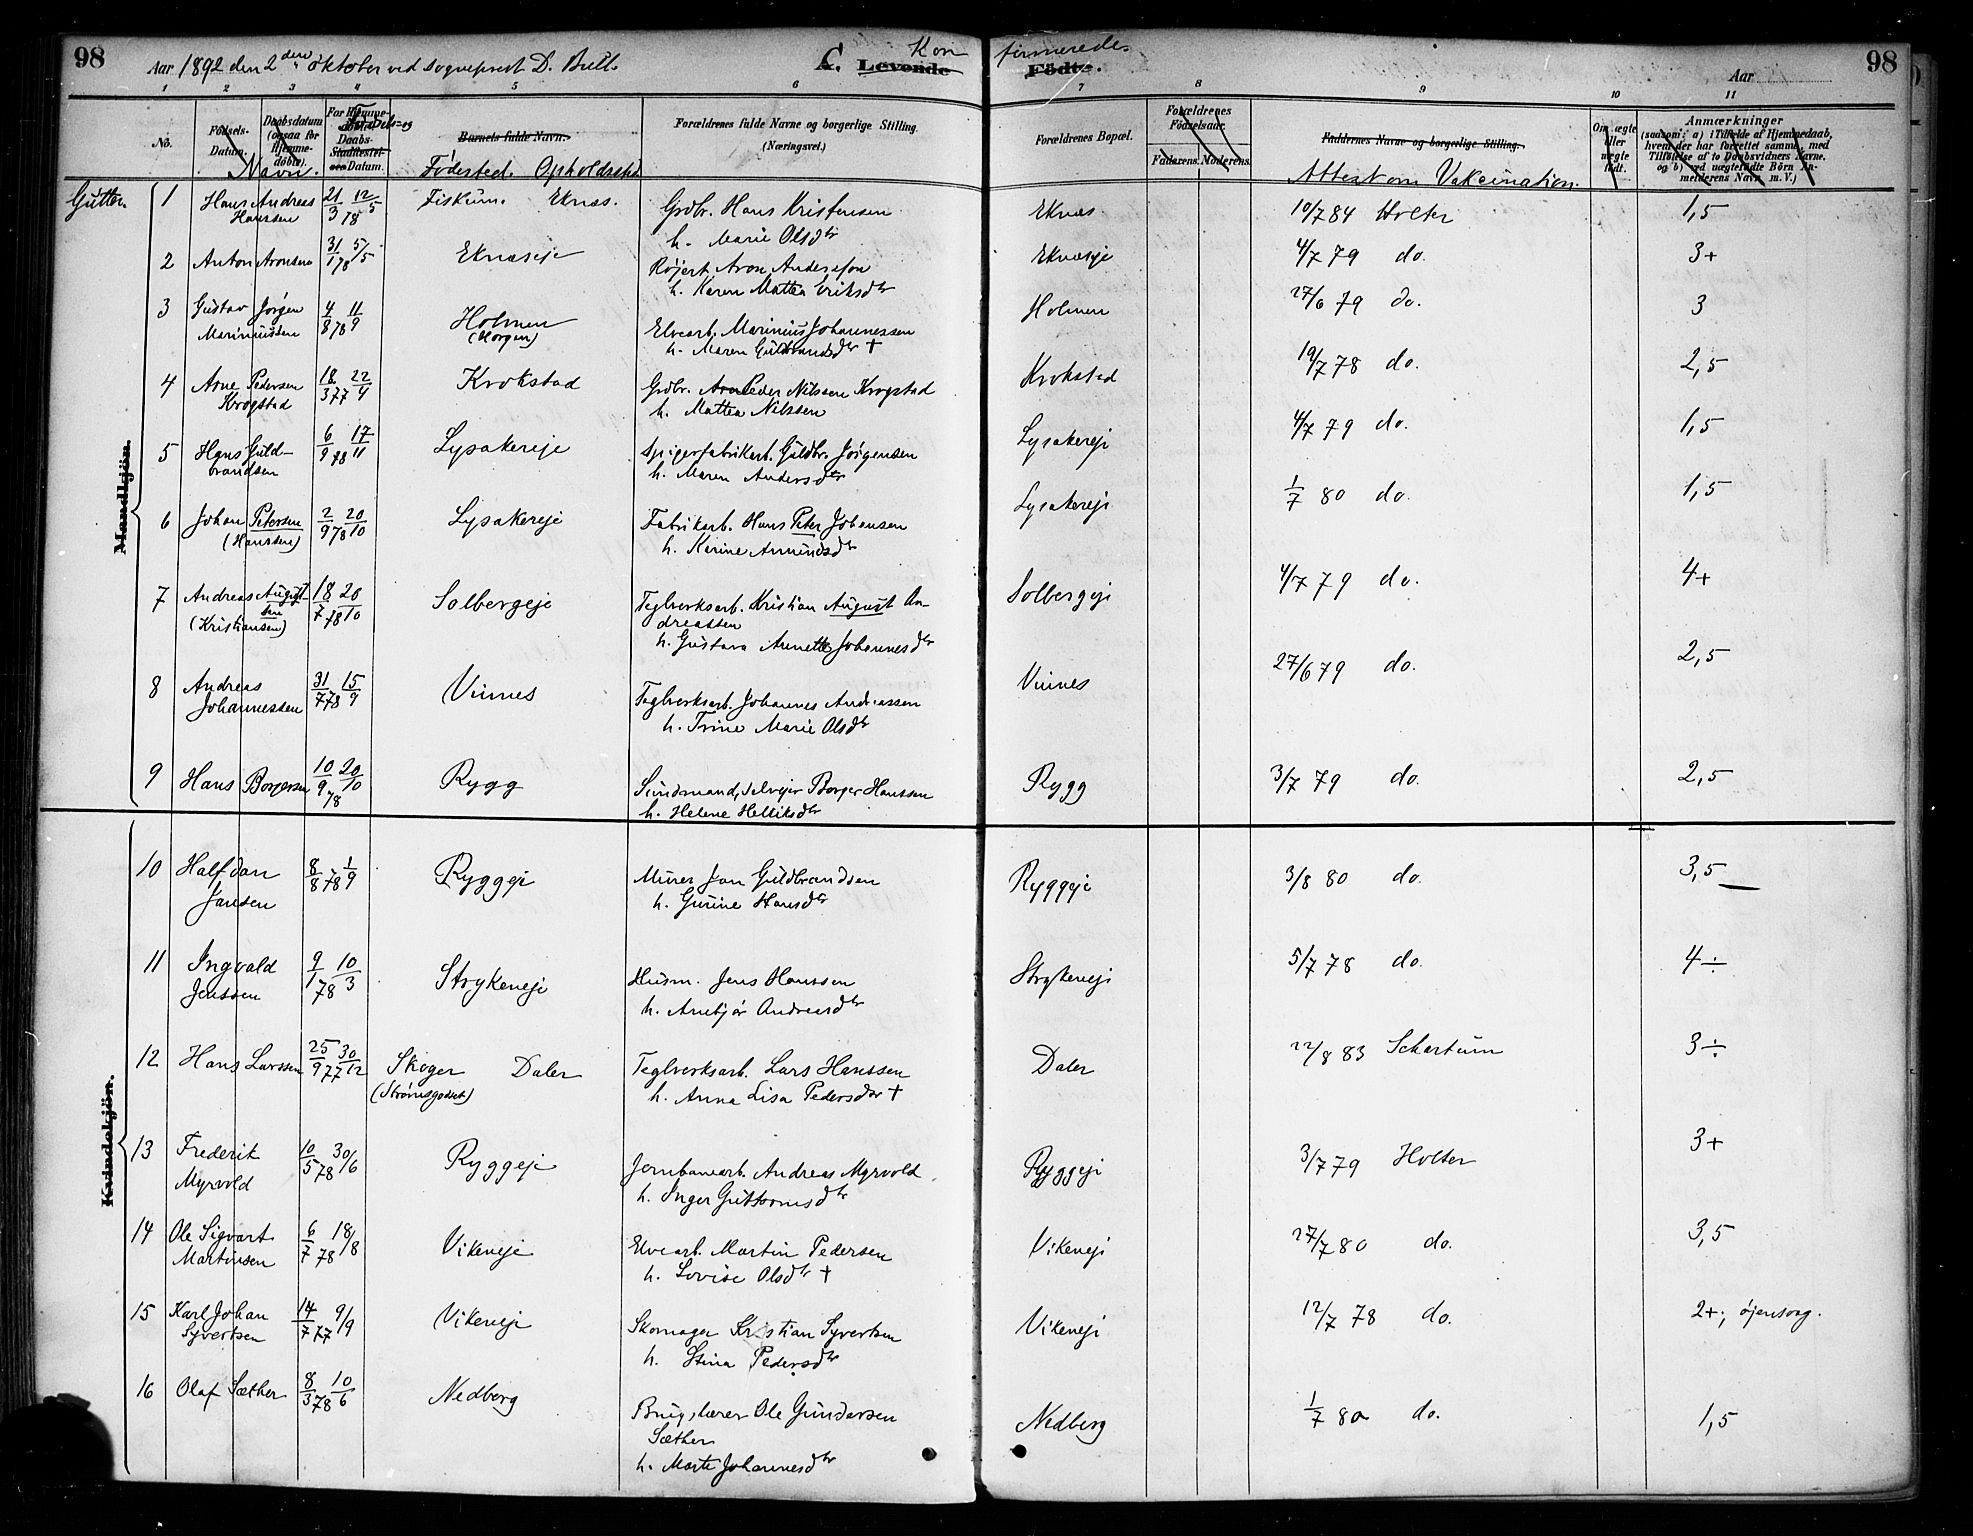 98
Aar 1892 den 2den oktober ved Sogneprest D. Bull.
C. Levende Kon
firmerede.
Födte.
Aar
98
1 2 3 4 5 6 7 8 9 10 11
No.
Födsels-Datum.
Daabsdatum (ogsaa for Hjemme-döbte).
Navn.
Daabs-
Datum.
Barnets fulde Navn.
Fødested. Opholdssted
Forældrenes fulde Navne og borgerlige Stilling.
(Næringsvei.)
Forældrenes Bopæl.
Forældrenes Födselsaar.
Faderens. Moderens.
Faddernes Navne og borgerlige Stilling.
Attest om Vakcination.
Om ægte eller uægte födt.
Anmærkninger
(saasom: a) i Tilfælde af Hjemmedaab, hvem der har forrettet samme, med Tilföielse af to Daabsvidners Navne, og b) ved uægtefödte Börn Anmelderens Navn m. V.)
Gutter.
Mandkjön
1 Hans Andreas Hanssen 21/3 78 12/5 Fiskum. Eknæs. Grdbr. Hans Kristensen
h. Marie Olsdtr
Eknæs 10/7 84 Holter 1,5
2 Anton Aronsen 31/1 78 5/5 Eknæseje Røjert Aron Andersson
h. Karen Mattea Eriksdtr
Eknæseje 4/7 79 do. 3+
3 Gustav Jørgen Marinussen 4/8 78 11/9 Holmen (Horgen) Elvearb. Marinius Johannessen
h. Maren Guldbrandsdtr +
Holmen 27/6 79 do. 3
4 Arne Pedersen Krogstad 18/3 77 22/4 Krokstad Grdbr. Peder Nilssen Krogstad
h. Mattea Nilssen
Krokstad 19/7 78 do. 2,5
5 Hans Guldbrandsen 6/9 78 17/11 Lysakereje Spigerfabrikarb. Guldbr. Jörgensen
h. Maren Andersdtr
Lysakereje 4/7 79 do. 1,5
6 Johan Petersen (Hanssen) 2/9 78 20/10 Lysakereje Fabrikarb. Hans Peter Johansen
h. Karine Amundsdtr
Lysakereje 1/7 80 do. 1,5
7 Andreas Augustsen (Kristiansen) 18/7 78 20/10 Solbergeje Teglverksarb. Kristian August Andreassen
h. Gustava Annette Johannesdtr
Solbergeje 4/7 79 do. 4+
8 Andreas Johannessen 31/7 78 15/9 Vinnes Teglverksarb. Johannes Andreassen
h. Trine Marie Olsdtr
Vinnes 27/6 79 do. 2,5
9 Hans Borgersen 10/9 78 20/10 Rygg Sundmand, Selvejer Borger Hanssen
h. Helene Helliksdtr
Rygg 3/7 79 do. 2,5
Kvindekjön.
10 Halfdan Jansen 8/8 78 1/9 Ryggeje Murer Jan Guldbrandsen
h. Gurine Hansdtr
Ryggeje 3/8 80 do. 3,5
11 Ingvald Jenssen 9/1 78 10/3 Strykeneje Husm. Jens Hanssen
h. Anebjør Andreasdtr
Strykeneje 5/7 78 do. 4÷
12 Hans Larssen 25/9 77 30/12 Skoger (Strømsgodset) Daler Teglverksarb. Lars Hanssen
h. Anna Lisa Pedersdtr +
Daler 22/8 83 Schartum 3÷
13 Frederik Myrvold 10/5 78 30/6 Ryggeje Jernbanearb. Andreas Myrvold
h. Inger Guttormsdtr
Ryggeje 3/7 79 Holter 3+
14 Ole Sigvart Martinsen 6/7 78 18/8 Vikeneje Elvearb. Martin Pedersen
h. Lovise Olsdtr +
Vikeneje 27/7 80 do. 3,5
15 Karl Johan Syvertsen 14/7 77 9/9 Vikeneje Skomager Kristian Syvertsen
h. Stina Pedersdtr
Vikeneje 12/7 78 do. 2+; øjensvag.
16 Olaf Sæther 8/3 78 10/6 Nedberg Brugslærer Ole Gundersen Sæther
h. Marte Johannesdtr
Nedberg 1/7 80 do. 1,5